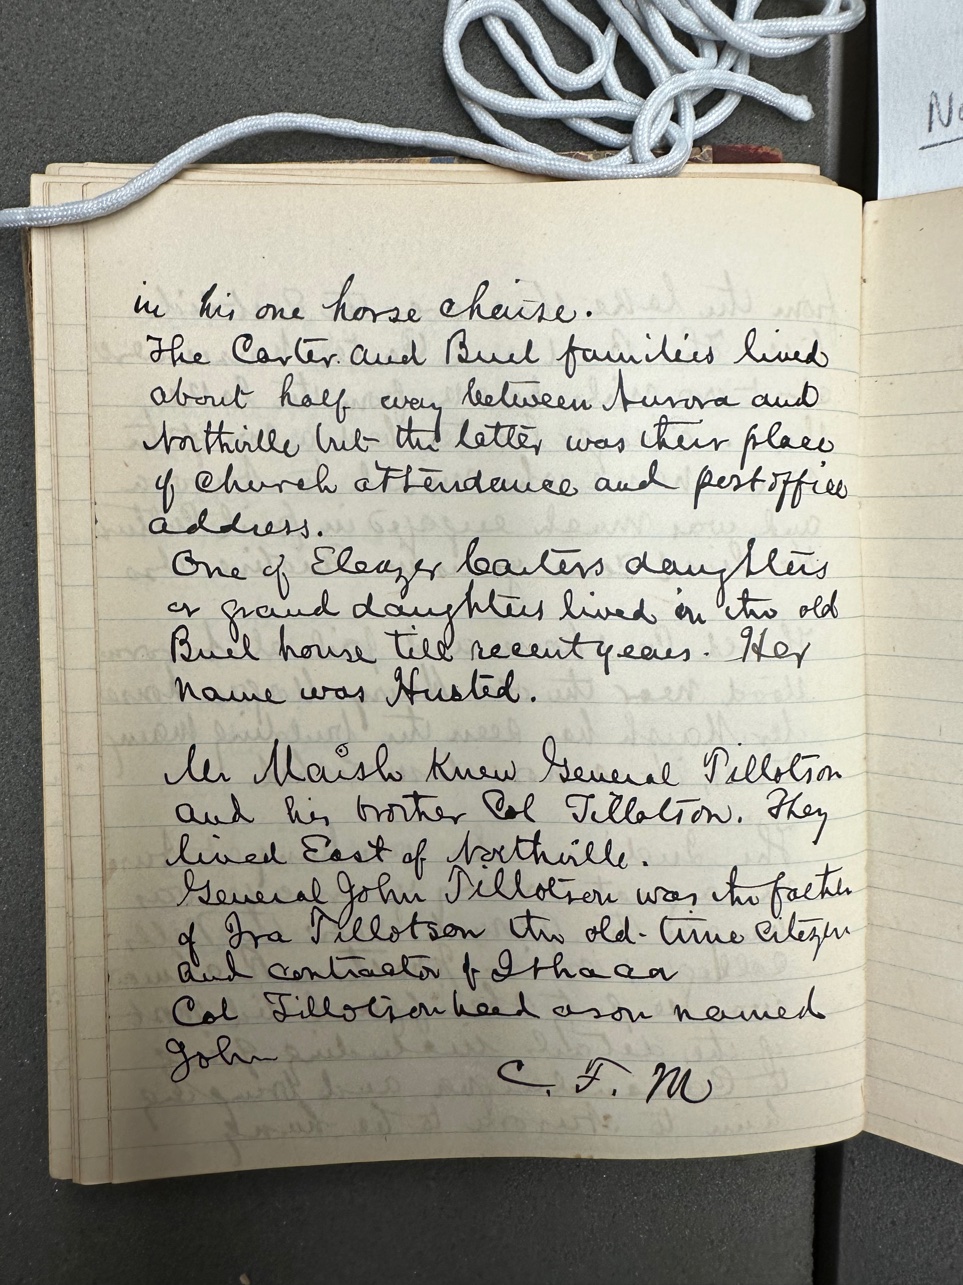 in his one horse chaise.
The Carter and Buel families lived
about half way between Aurora and
Northville but the latter was their place
of church attendance and postoffice
address.
One of Eleazer Carters daughters
or grand daughters lived in the old
Buel house till recent years. Her
name was Husted.
Mr Maish knew General Tillotson
and his brother Col Tillotson. They
lived East of Northville.
General John Tillotson was the father
of Ira Tillotson the old-time citizen
and contractor of Ithaca
Col Tillotson had a son named
John
C. F. M